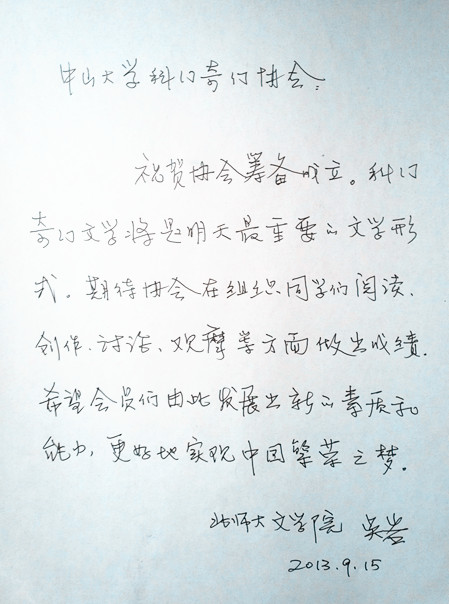 中山大学科幻奇幻协会：
祝贺协会筹备成立。科幻
奇幻文学将是明天最重要的文学形
式。期待协会在组织同学们阅读、
创作、讨论、观摩等方面做出成绩.
希望会员们由此发展出新的素质和
能力，更好地实现中国繁荣之梦.
北师大文学院 吴岩
2013.9.15